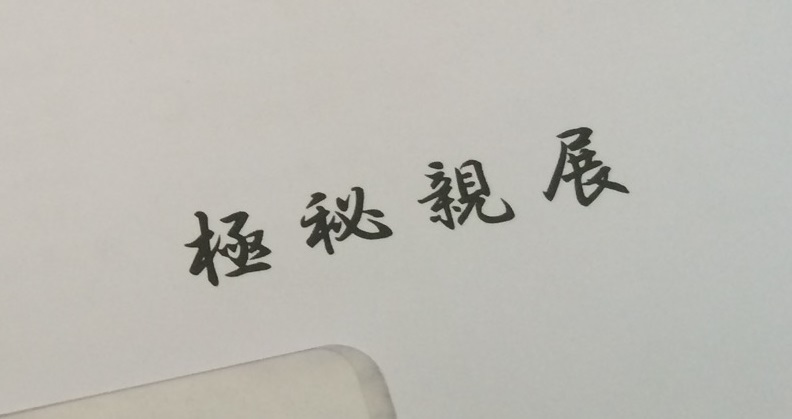 極秘親展